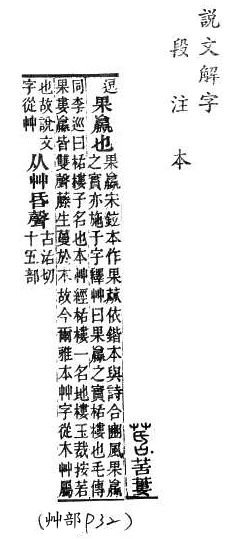 說文解字
段注本
苦蔞
逗
果蠃也
果蠃宋鉉本作果蓏依鍇本與詩合豳風果蠃
之實亦施于宇釋艸曰果蠃之實栝樓也毛傳
同李巡曰栝樓子名也本艸經栝樓一名地樓玉裁按苦
果蔞蠃皆雙聲藤生蔓於木故今爾雅本艸字從木艸屬
也故說文
字從艸
从艸昏聲
古活切
十五部
(艸部P32)